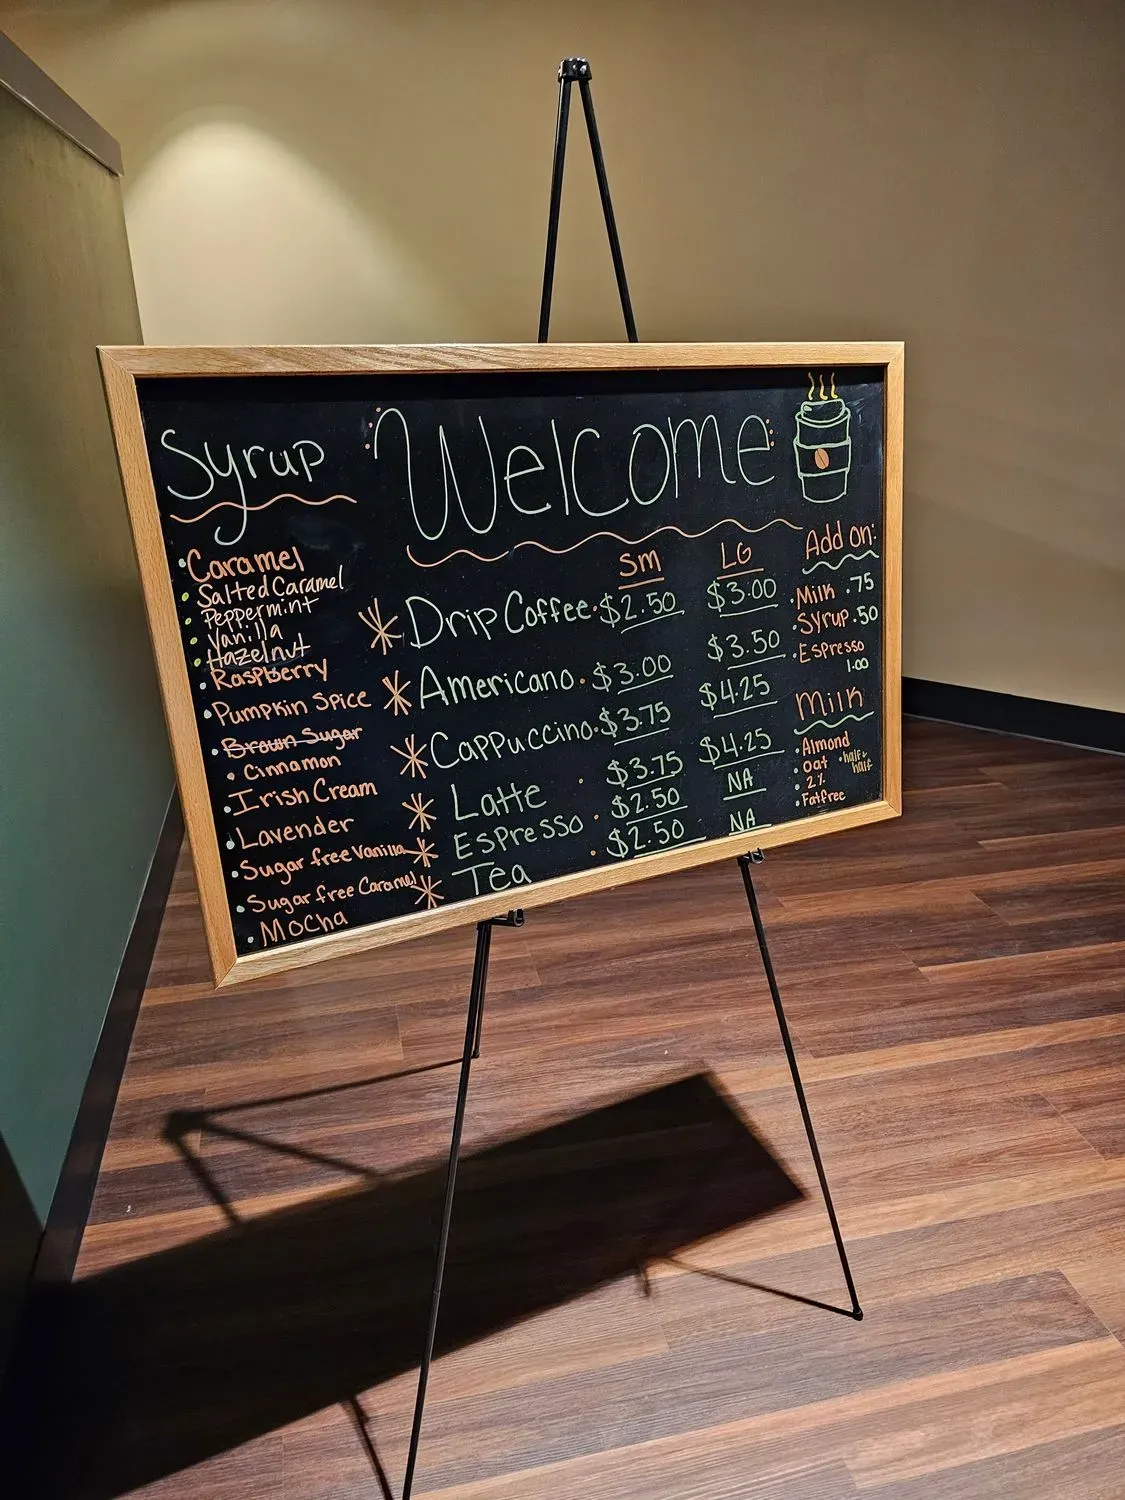 Welcome
Syrup
Caramel
Salted Caramel
Peppermint
Vanilla
Hazelnut
Raspberry
Pumpkin Spice
Brown Sugar
Cinnamon
Irish Cream
Lavender
Sugar free Vanilla
Sugar free Caramel
Mocha
SM LG
Drip Coffee $2.50 $3.00
Americano $3.00 $3.50
Cappuccino $3.75 $4.25
Latte $3.75 $4.25
Espresso $2.50 NA
Tea $2.50 NA
Add on:
Milk .75
Syrup .50
Espresso
1.00
Milk
Almond
Oat half+
2% half
Fatfree